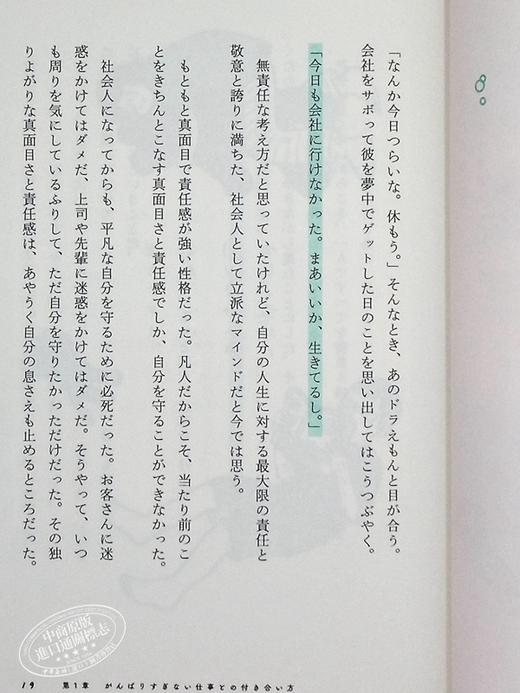 「なんか今日つらいな。休もう。」そんなとき、あのドラえもんと目が合う。
会社をサボって彼を夢中でゲットした日のことを思い出してはこうつぶやく。
「今日も会社に行けなかった。まあいいか、生きてるし。」
無責任な考え方だと思っていたけれど、自分の人生に対する最大限の責任と
敬意と誇りに満ちた、社会人として立派なマインドだと今では思う。
もともと真面目で責任感が強い性格だった。凡人だからこそ、当たり前のこ
とをきちんとこなす真面目さと責任感でしか、自分を守ることができなかった。
社会人になってからも、平凡な自分を守るために必死だった。お客さんに迷
惑をかけてはダメだ、上司や先輩に迷惑をかけてはダメだ。そうやって、いつ
も周りを気にしているふりして、ただ自分を守りたかっただけだった。その独
りよがりな真面目さと責任感は、あやうく自分の息さえも止めるところだった。
19 第1章 がんばりすぎない仕事との付き合い方
中商原版
进口通关标志